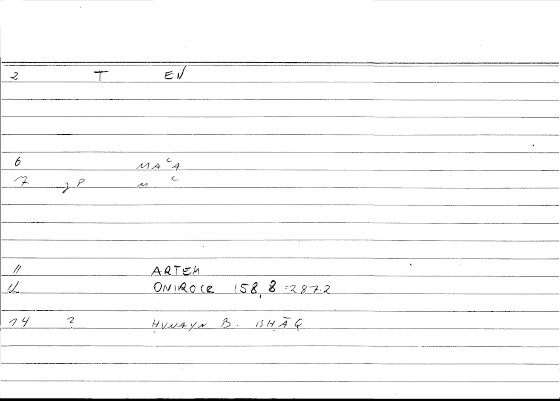 2 T EN
6 MAᶜA
7 P M ᶜ
11 ARTEM
ONIROCR 158, 8 = 287.2
14 ? ḤUNAYN B. ISḤĀQ